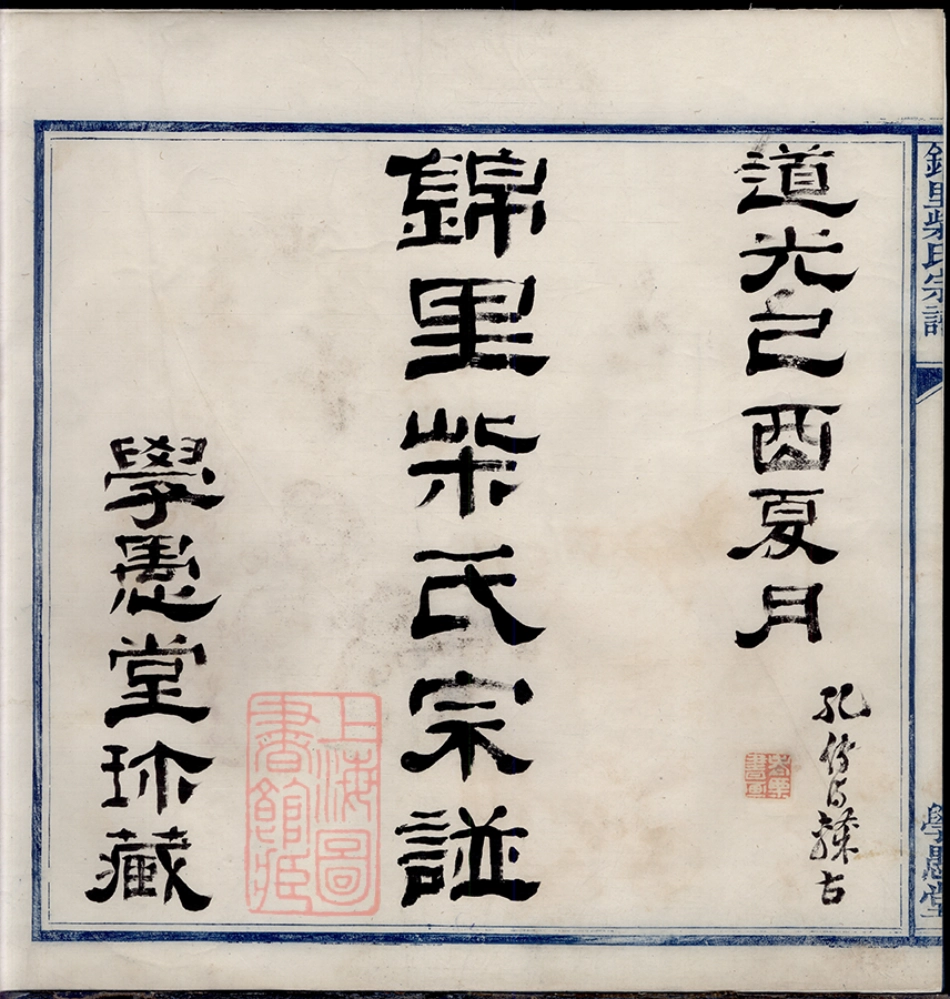 錦里柴氏宗譜
學愚堂
道光己酉夏月
錦里柴氏宗譜
上海圖書館藏
學愚堂珎藏